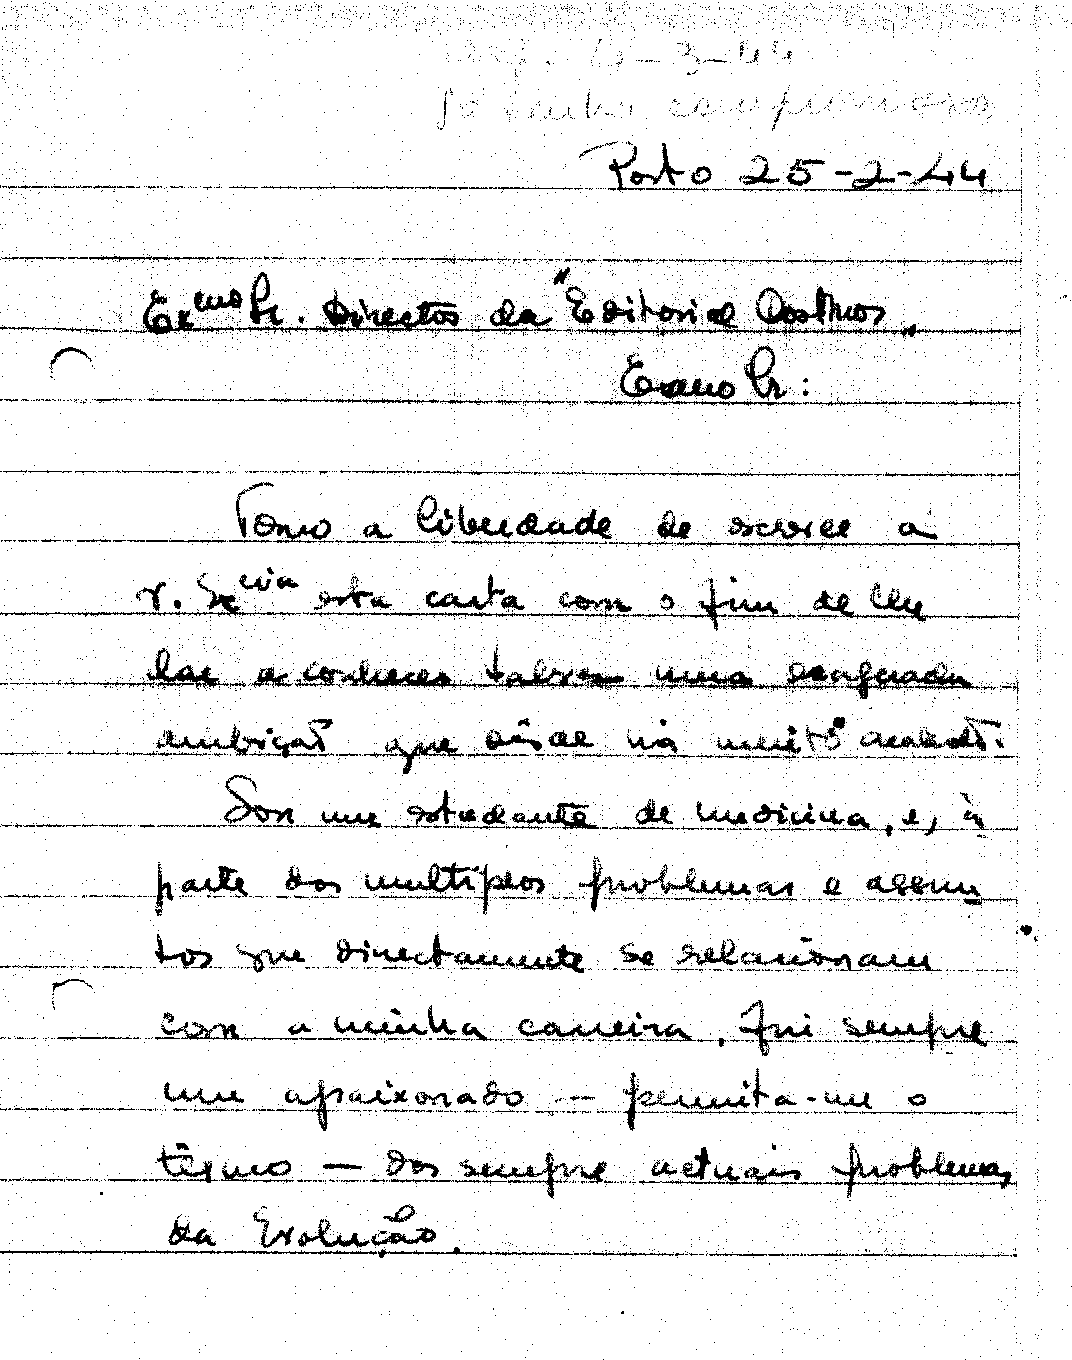 6-3-44
já tenho compromissos
Porto 25-2-44
Exmo Sr. Director da "Editorial Cosmos"
Exmo Sr:
Tomo a liberdade de escrever a
V. Excia esta carta com o fim de lhe
dar a conhecer talvez uma exagerada
ambição que oiso há muito
Sou um estudante de medicina, e, à
parte dos multiplos problemas e assun
tos que directamente se relacionam
com a minha carreira, fui sempre
um apaixonado — permita-me o
têrmo — dos sempre actuais problemas
da Evolução.